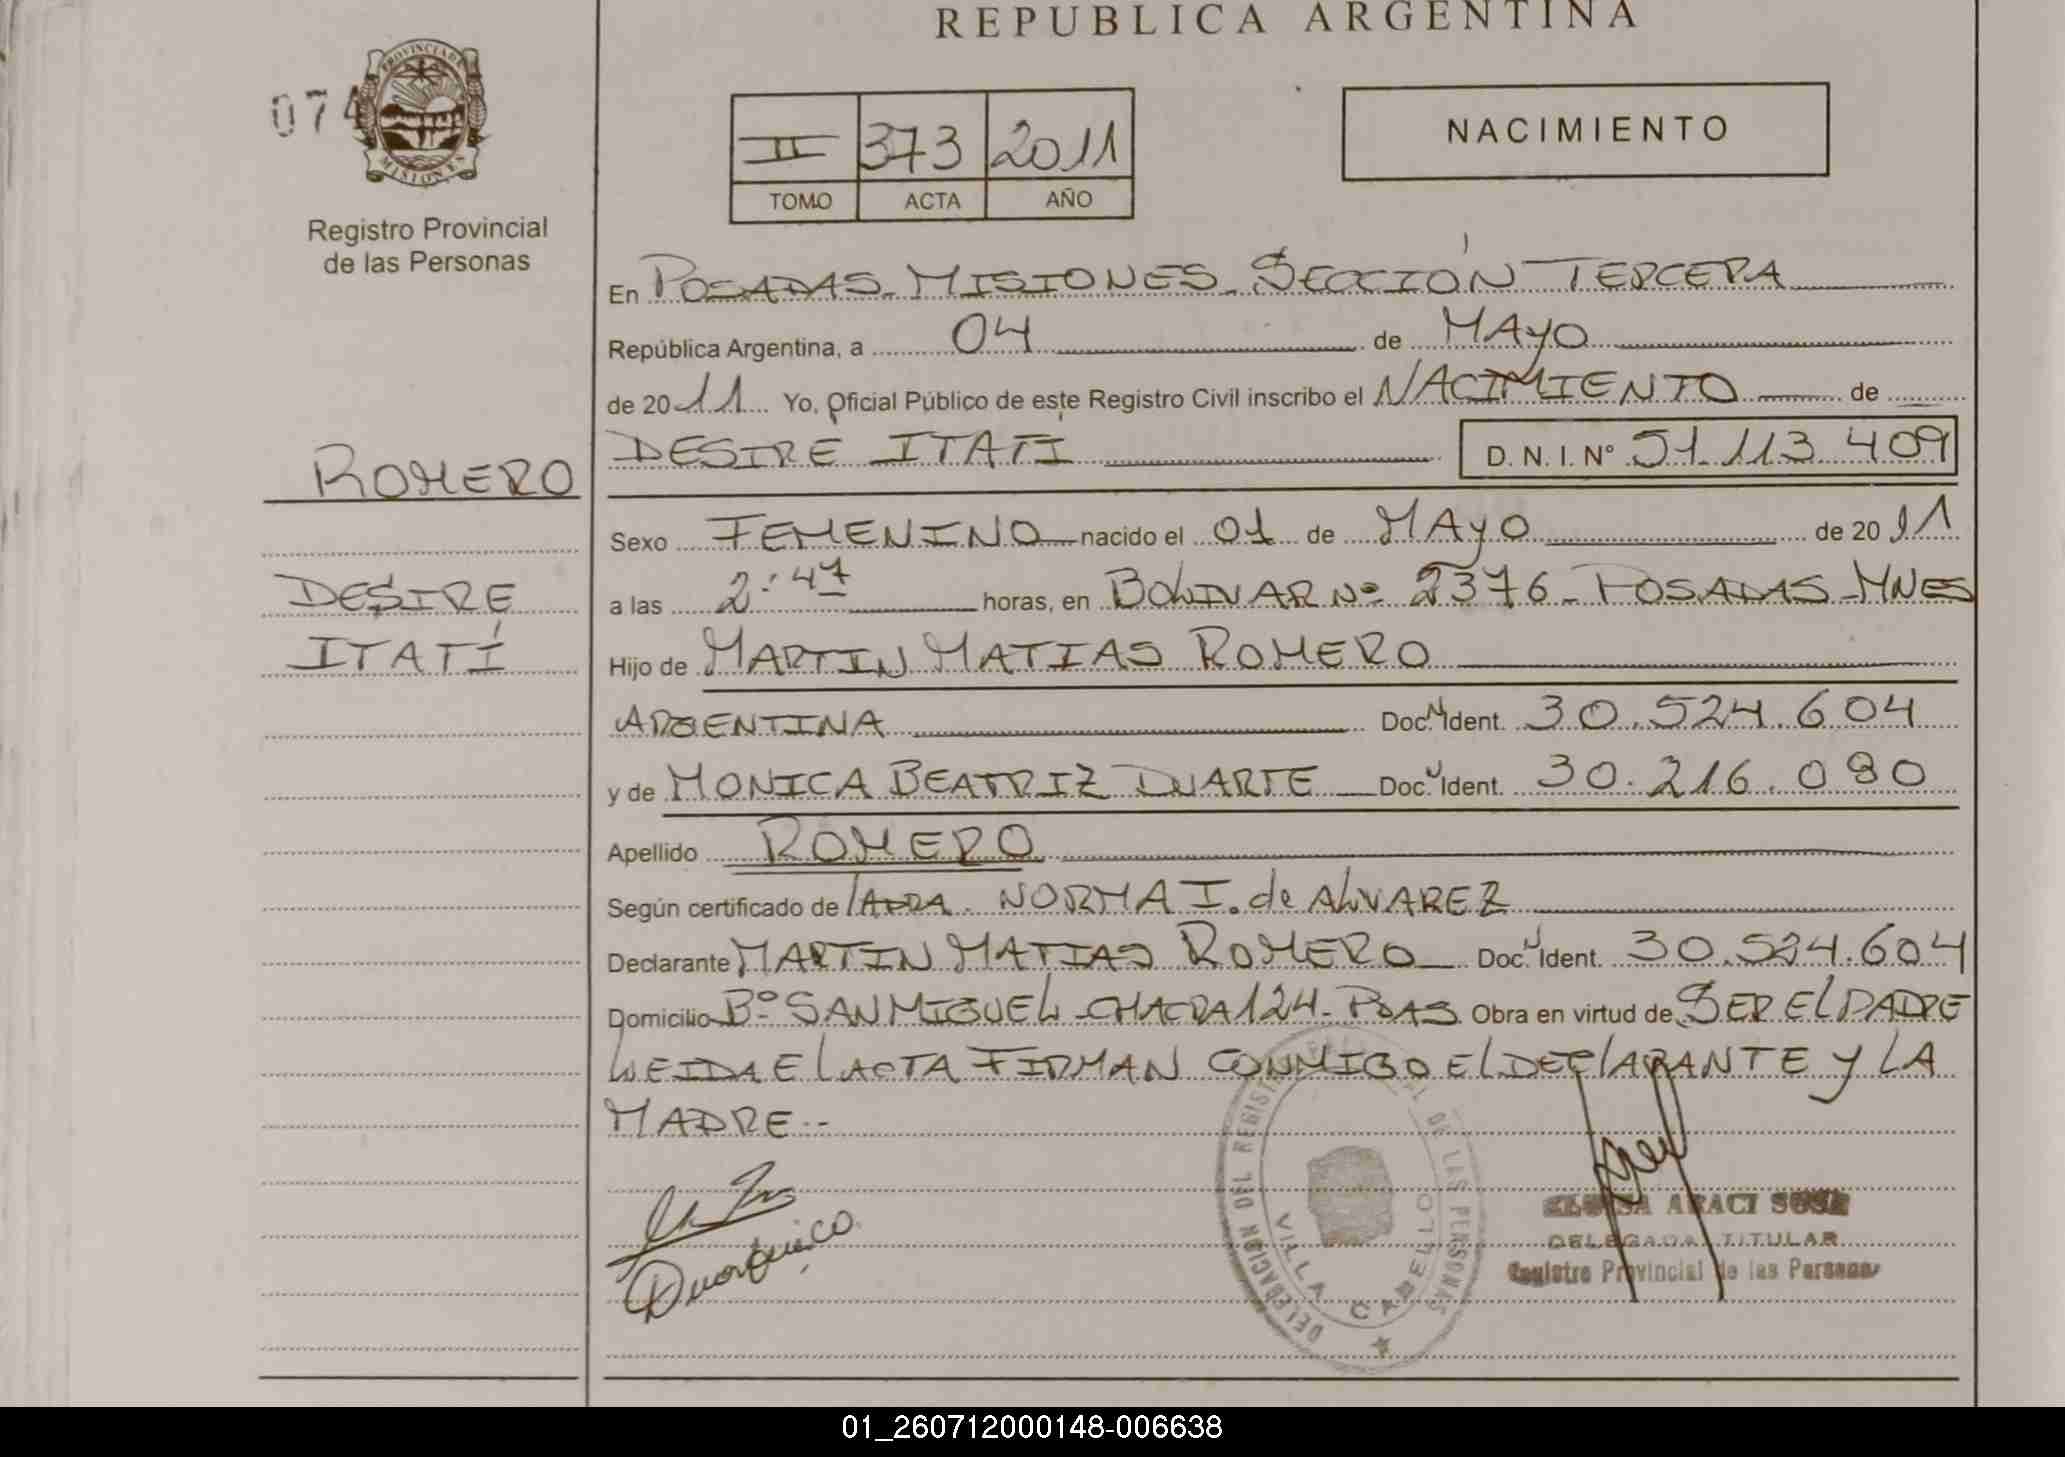 REPUBLICA ARGENTINA
074
PROVINCIA DE MISIONES
Registro Provincial
de las Personas
II 373 2011
TOMO ACTA AÑO
NACIMIENTO
En POSADAS - MISIONES - SECCIÓN TERCERA
República Argentina, a 04 de MAYO
de 2011 Yo, Oficial Público de este Registro Civil inscribo el NACIMIENTO de
ROMERO
DESIRE ITATÍ D.N.I. Nº 51.113.409
Sexo FEMENINO nacido el 01 de MAYO de 2011
DESIRE
a las 2:47 horas, en BOLIVAR Nº 2376 - POSADAS - MNES
ITATÍ
Hijo de MARTIN MATIAS ROMERO
ARGENTINA Doc. N Ident. 30.524.604
y de MONICA BEATRIZ DUARTE Doc. N Ident. 30.216.080
Apellido ROMERO
Según certificado de NORMA I. de ALVAREZ
Declarante MARTIN MATIAS ROMERO Doc. N Ident. 30.524.604
Domicilio Bº SAN MIGUEL - CHACRA 124 - PDAS Obra en virtud de SER EL PADRE
LEIDA EL ACTA FIRMAN CONMIGO EL DECLARANTE Y LA
MADRE.-
DELEGACION DEL REGISTRO DE LAS PERSONAS
VILLA CABELLO
ARACI
DELEGADA TITULAR
Registro Provincial de las Personas
01_260712000148-006638